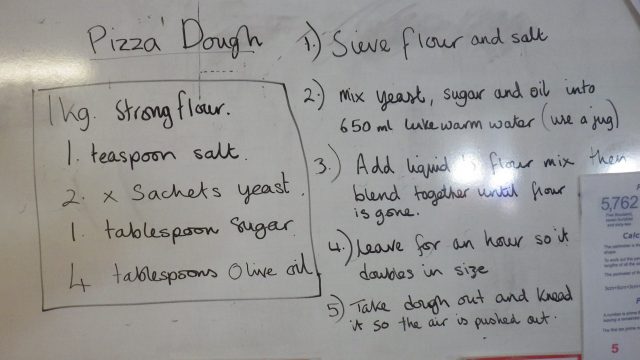 Pizza Dough
1kg. Strong flour.
1. teaspoon salt.
2. x Sachets yeast.
1. tablespoon Sugar.
4 tablespoons Olive oil.
1.) Sieve flour and salt
2.) Mix yeast, sugar and oil into
650 ml lukewarm water (use a jug)
3.) Add liquid flour mix then
blend together until flour
is gone.
4.) Leave for an hour so it
doubles in size
5) Take dough out and knead
it so the air is pushed out.
5,762
Calc
5